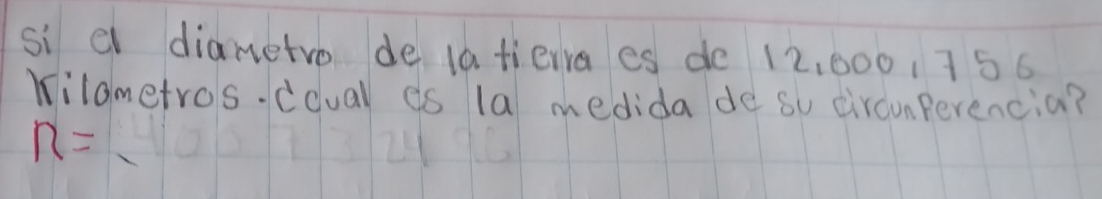 Si el diametro de la tierra es de 12,000,756
Kilometros. Cqual es la medida de su circunferencia?
R=